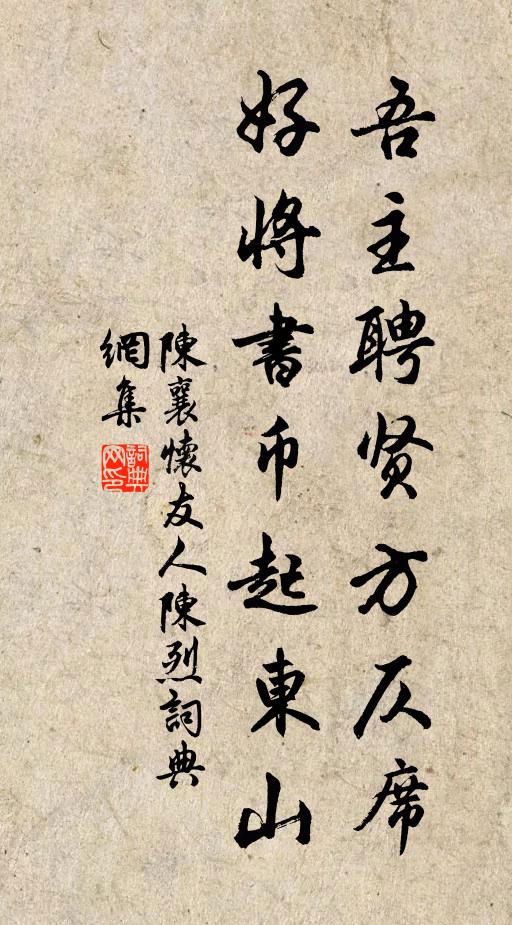 吾主聘贤方仄席
好將書币起東山
陳襄懷友人陳烈詞典
網集
詞典网印